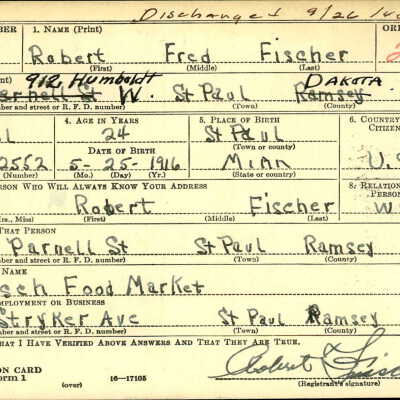 Discharged 9/26/
BER 1. NAME (Print) OR
Robert Fred Fischer
(First) (Middle) (Last)
912 Humboldt DAKOTA
Parnell St W. St Paul Ramsey
ber and street or R. F. D. number) (Town) (County)
4. AGE IN YEARS 5. PLACE OF BIRTH 6. COUNTRY
CITIZEN
24 St Paul
DATE OF BIRTH (Town or county)
2552 5-25-1916 Minn U.
(Number) (Mo.) (Day) (Yr.) (State or country)
RSON WHO WILL ALWAYS KNOW YOUR ADDRESS 8. RELATION
PERSON
Robert Fischer W
rs., Miss) (First) (Middle) (Last)
THAT PERSON
Parnell St St Paul Ramsey
ber and street or R. F. D. number) (Town) (County)
NAME
sch Food Market
MPLOYMENT OR BUSINESS
Stryker Ave St Paul Ramsey
ber and street or R. F. D. number) (Town) (County)
HAT I HAVE VERIFIED ABOVE ANSWERS AND THAT THEY ARE TRUE.
Robert F. Fisc
ON CARD
orm 1 (over) 16-17105 (Registrant's signature)